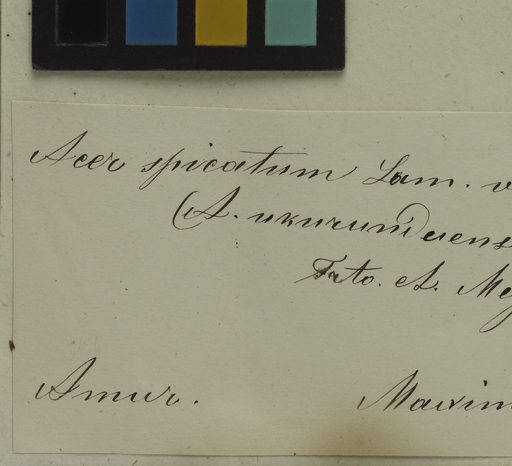 Acer spicatum Lam. v
(A. ukurunduens
Trto. et. Mey
Amur.
Maxim